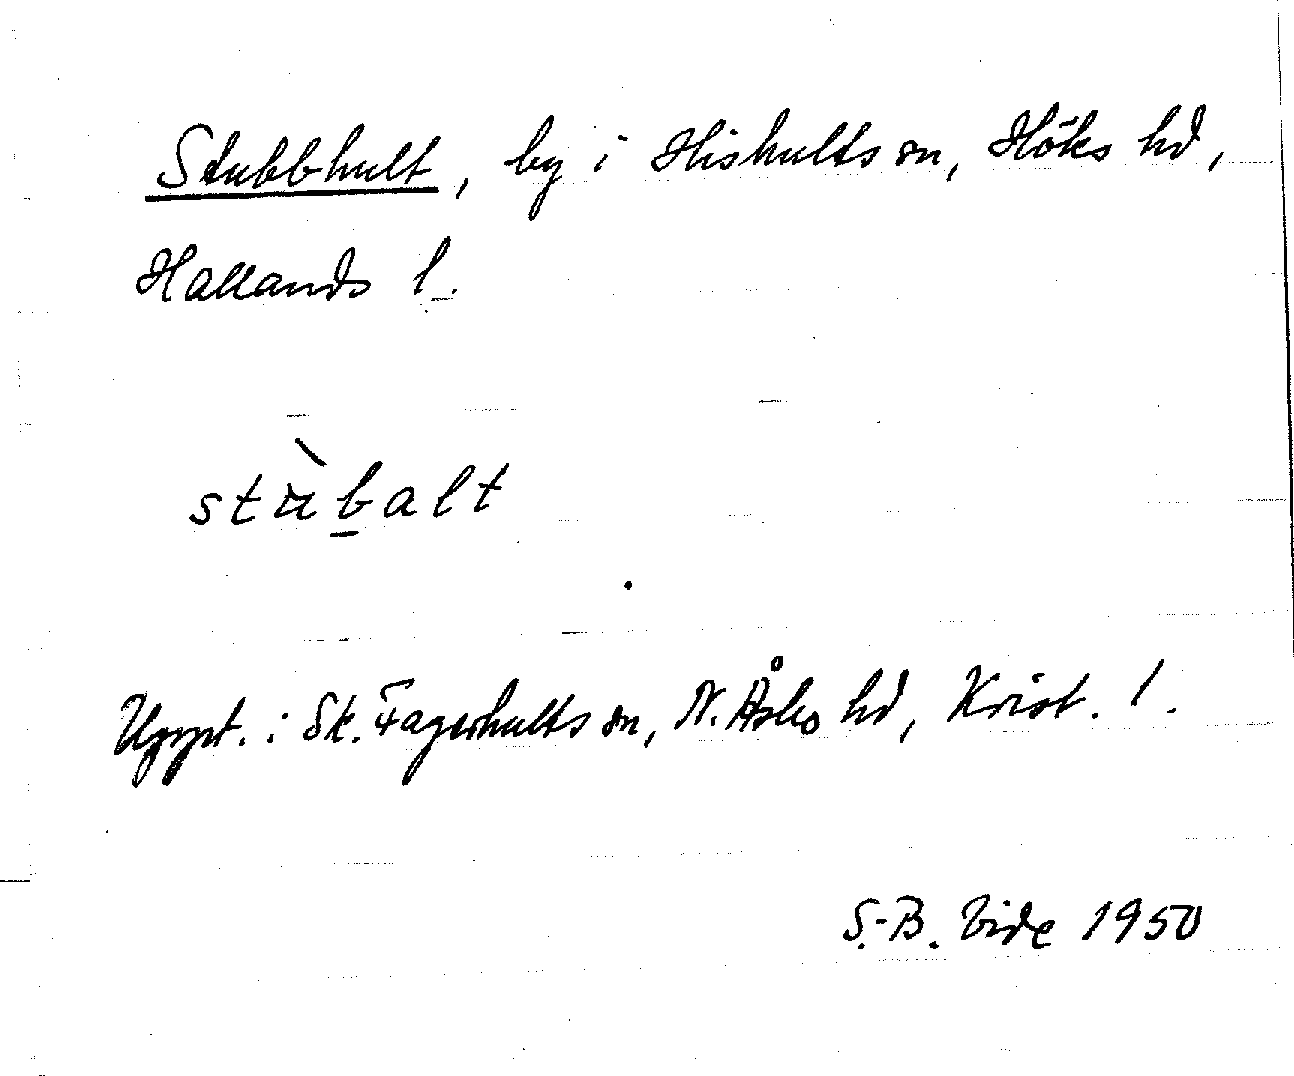 Stubbhult, by i Hishults sn, Höks hd,
Hallands l.
stùb̲alt
Uppt. i Sk. Fagerhults sn, N. Åsbo hd, Krist. l.
S.-B. Vide 1950